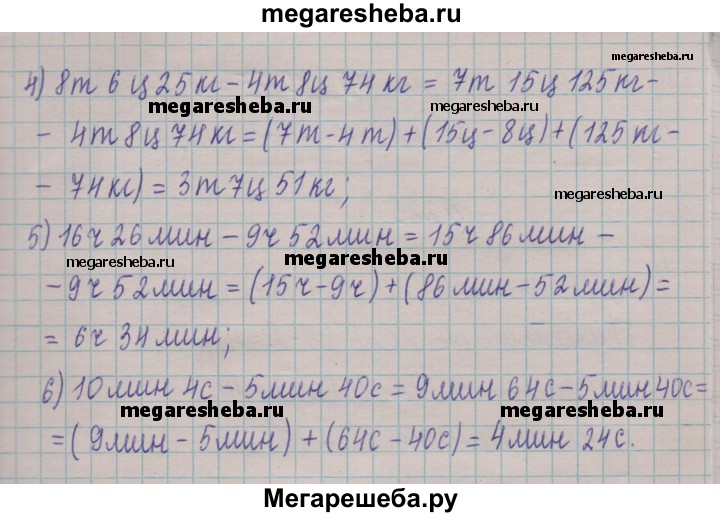 megaresheba.ru
megaresheba.ru
4) 8т 6ц 25кг – 4т 8ц 74кг = 7т 15ц 125кг –
megaresheba.ru
megaresheba.ru
– 4т 8ц 74кг = (7т – 4т) + (15ц – 8ц) + (125кг –
– 74кг) = 3т 7ц 51кг;
megaresheba.ru
5) 16ч 26мин – 9ч 52мин = 15ч 86мин –
megaresheba.ru
megaresheba.ru
– 9ч 52мин = (15ч – 9ч) + (86мин – 52мин) =
= 6ч 34мин;
6) 10мин 4с – 5мин 40с = 9мин 64с – 5мин 40с =
megaresheba.ru
megaresheba.ru
= (9мин – 5мин) + (64с – 40с) = 4мин 24с.
Мегарешеба.ру